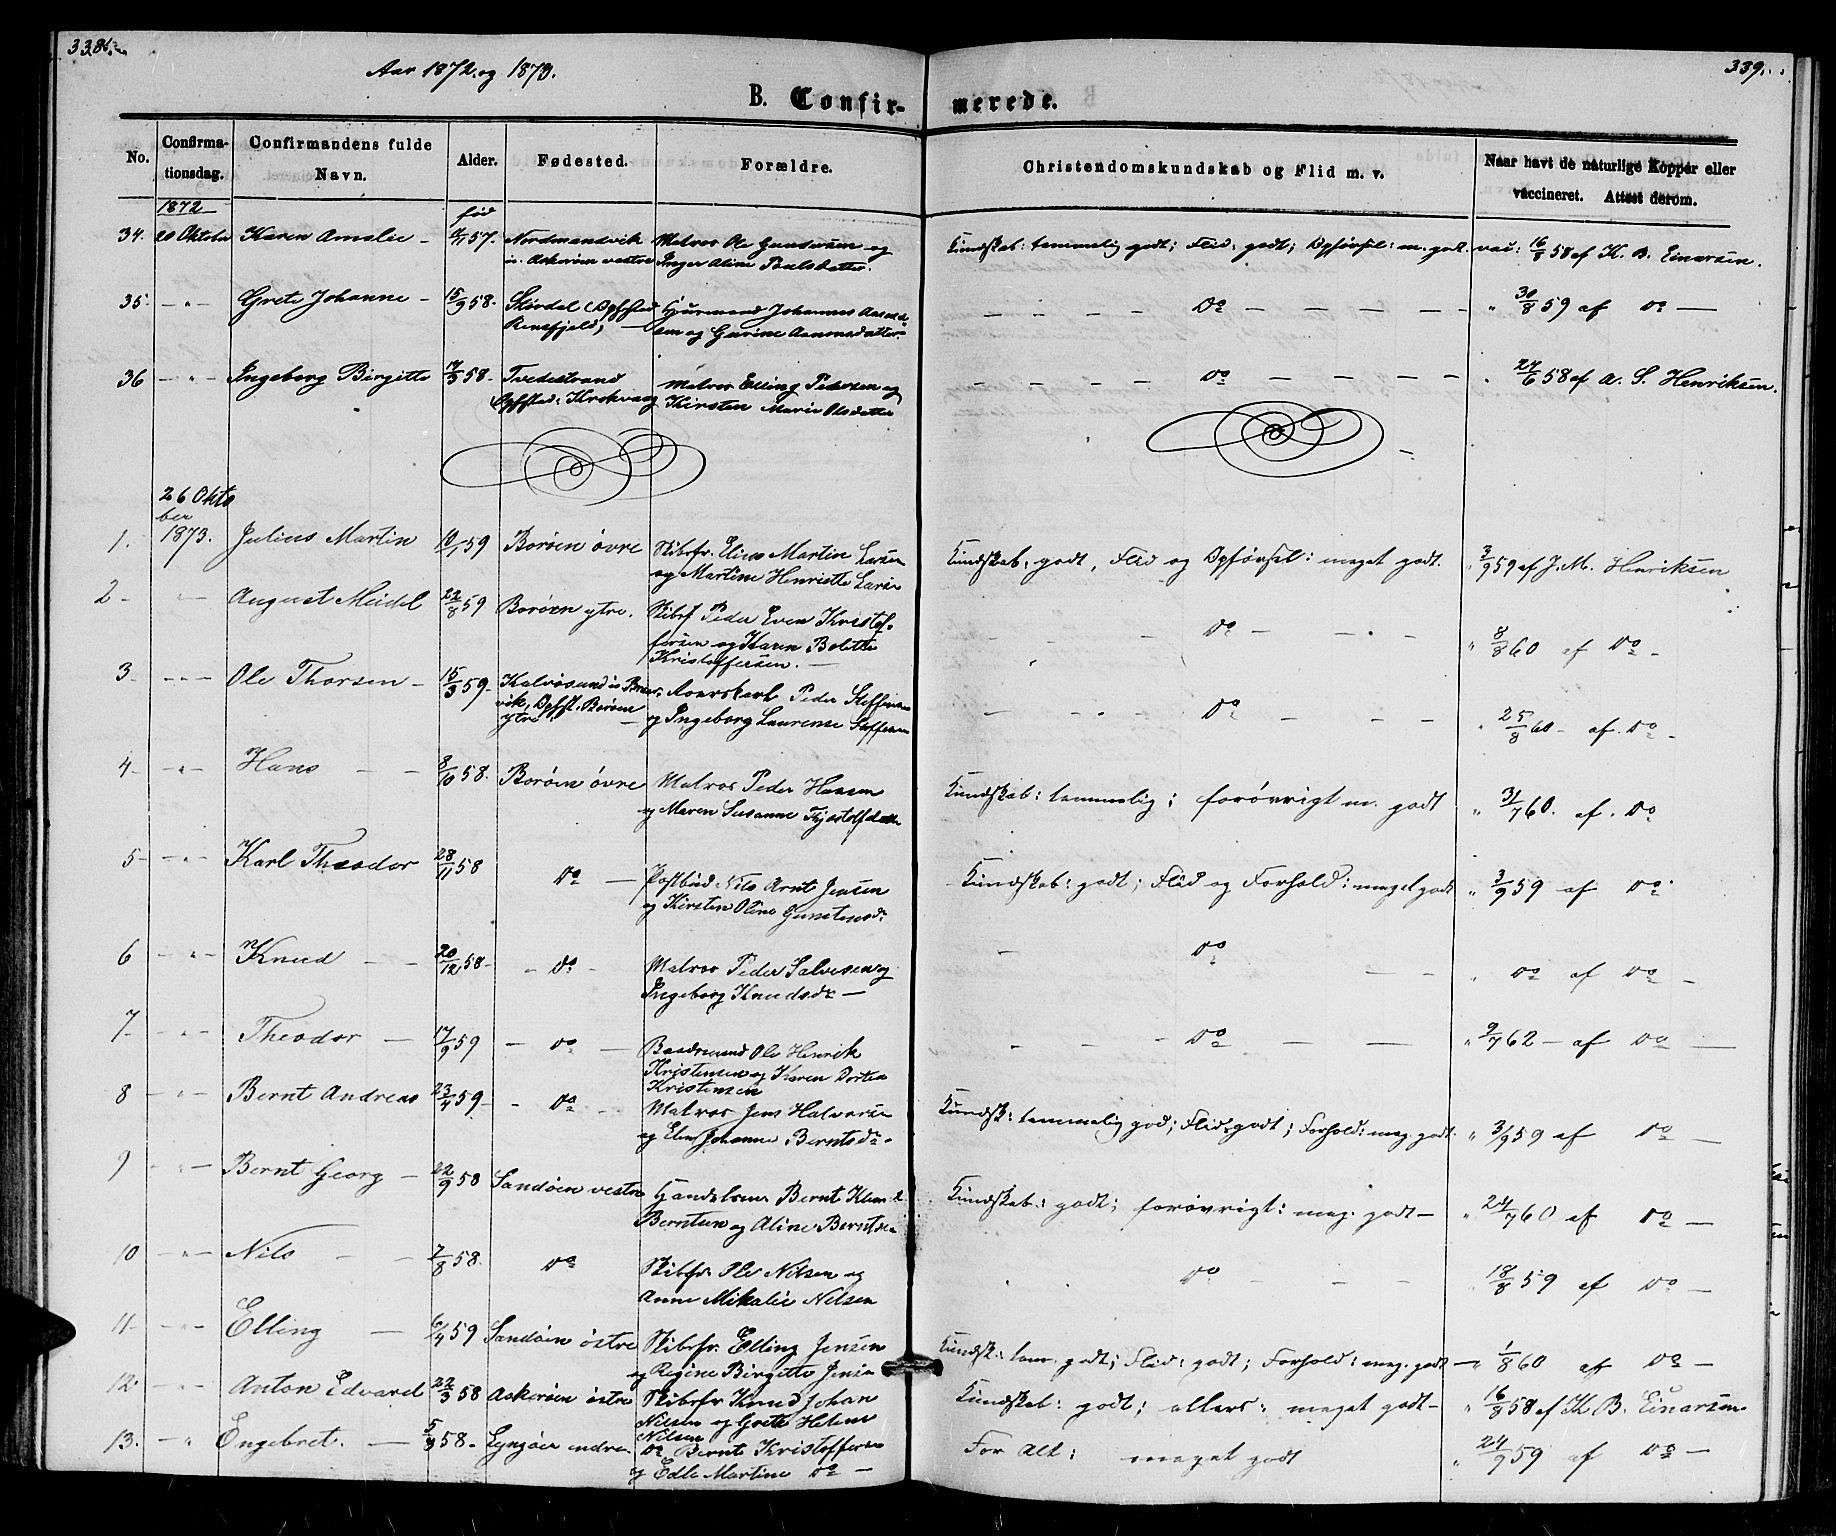 338.
Aar 1872 og 1873.
B. Confir-
merede.
339.
No.
Confirma-
tionsdag.
Confirmandens fulde
Navn.
Alder.
Fødested.
Forældre.
Christendomskundskab og Flid m. v.
Naar havt de naturlige Kopper eller
vaccineret. Attest derom.
1872
fød
34. 20 Oktober Karen Amalie - 57. Nordmandvik Matros Ole Gundersen og Kundskab: temmelig godt; Flid: godt; Opførsel: m. godt. vac: 16/8 58 af K. B. Einarsen.
i Askerøen vestre Inger Aline Poulsdatter.
35 - " - Grete Johanne - 15/9 58. Johannes
og Gurine Aanonsdatter. Do " 30/8 59 af Do -
36 - " - Ingeborg Birgitte 7/3 58. Tvedestrand Matros Elling Pedersen og Do " 24/6 58 af A. S. Henriksen.
Opfsted: Kirsten Marie Olsdatter
26 Okto
ber
1. 1873. Julius Martin 10/1 59 Borøen øvre Skibsfr. Elias Martin Larsen Kundskab: godt, Flid og Opførsel: meget godt. " 3/9 59 af J. M. Henriksen
og Martine Henriette Larsen
2 - " - August Meidel 22/8 59 Borøen ytre. Skibsf Peder Even Kristof-
fersen og Karen Bolette Do " 8/8 60 af Do -
Kristoffersen. -
3. - " - Ole Thorsen - 15/3 59 - Kalvøsund i Peder Steffensen Do " 25/8 60 - af Do -
vik, Opfst. Borøen og Ingeborg Laurense Steffensen
ytre. -
4 - - " - Hans - - 8/10 58. Borøen øvre Matros Peder Hansen Kundskab: temmelig; forøvrigt m. godt " 31/7 60. af Do
og Maren Susanne
5 - - " - Karl Theodor 28/11 58 Do - Postbud Nils Arnt Jensen Kundskab: godt; Flid og Forhold: meget godt " 3/9 59 af Do
og Kirsten Oline
6 - " - Knud - - 20/12 58 - - Do - Matros Peder Salvesen og Do " Do af Do -
Ingeborg Knudsdr -
7 - - " - Theodor - 17/9 59 - Do - Ole Henrik Do " 9/7 62 - af Do -
Kristensen og Karen Dortea
Kristensen
8 - " - Bernt Andreas 23/4 59 - - Do - Matros Jens Halvorsen Kundsk: temmelig god; Flid: godt; Forhold: meg. godt. " 3/9 59 af Do -
og Elen Johanne Berntsdr.
9 - " - Bernt Georg - 22/9 58 Sandøen vestre Handelsm Bernt Kundskab: godt; forøvrigt: meg. godt - " 24/7 60 af Do -
Berntsen og Aline Berntsen
10 - " - Nils - - 7/8 58. Do Skibsfr. Ole Nilsen og Do " 18/8 59 af Do -
Anne Mikalie Nilsen
11 - - " - Elling - 6/4 59 Sandøen østre Skibsfr. Elling Jensen Kundsk: tem. godt; Flid: godt; Forhold: meg. godt - " 1/8 60 af Do -
og Regine Birgitte Jensen
12 - " - Anton Edvard 22/3 58 Askerøen østre Skibsfr Knud Johan Kundskab: godt; ellers: meget godt - " 16/8 58 af K. B. Einarsen
Nilsen og Grete Helene
Nilsen
13. - " Engebret. - 5/3 58 - Lyngøer indre. Do Bernt Kristoffersen For Alt: meget godt " 24/9 59 af Do -
og Edle Martine Do -